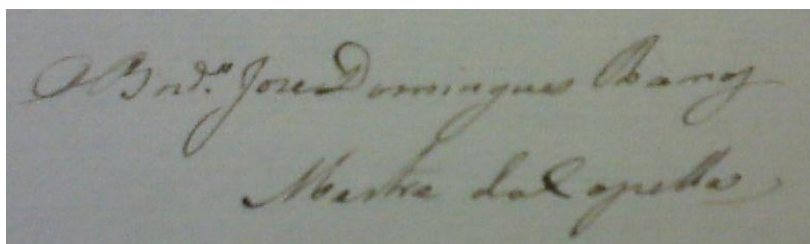 O Bnd.º Jose Domingues Ramos
Mestre da Capella